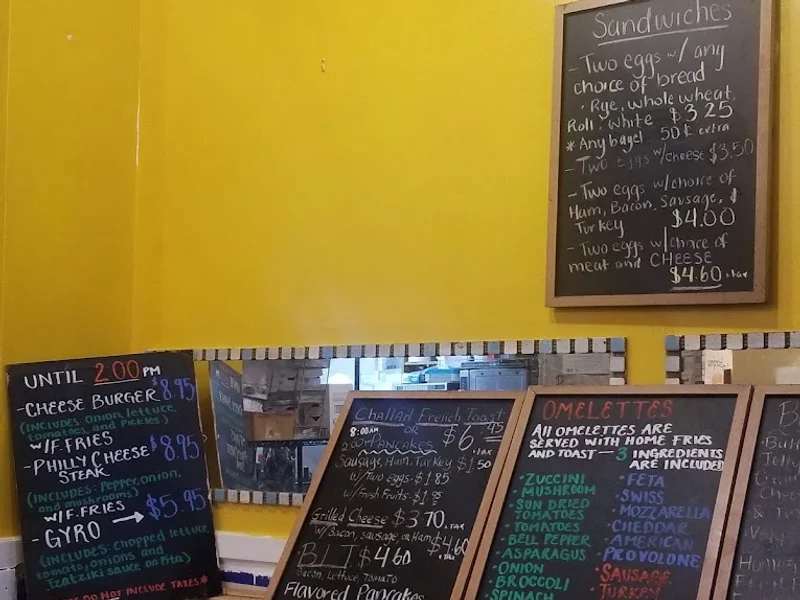 Sandwiches
- Two eggs w/ any
choice of bread
· Rye, whole wheat,
Roll, white $3.25
* Any bagel 50¢ extra
- Two eggs w/cheese $3.50
- Two eggs w/choice of
Ham, Bacon, Sausage, &
Turkey $4.00
- Two eggs w/choice of
meat and CHEESE
$4.60 + tax
UNTIL 2:00 PM
- CHEESE BURGER $8.95
(INCLUDES: Onion, lettuce,
tomatoes, and Pickles)
W/F.FRIES
- PHILLY CHEESE $8.95
STEAK
(INCLUDES: Pepper, onion,
and mushrooms)
W/F.FRIES
- GYRO → $5.95
(INCLUDES: Chopped lettuce,
tomato, onions and
Tzatziki sauce on Pita)
DO NOT INCLUDE TAXES *
Challah French Toast
8:00AM OR $6.95
2:00PM PANCAKES + tax
Sausage, Ham, Turkey $1.50
w/Two eggs $1.85
w/Fresh Fruits $1.95
Grilled Cheese $3.70 + TAX
w/Bacon, sausage or Ham $4.60
+ tax
BLT $4.60
Bacon, Lettuce, Tomato
Flavored Pancakes
OMELETTES
All OMELETTES ARE
SERVED WITH HOME FRIES
AND TOAST — 3 INGREDIENTS
ARE INCLUDED
· ZUCCINI
· MUSHROOM
· SUN DRIED
TOMATOES
· TOMATOES
· BELL PEPPER
· ASPARAGUS
· ONION
· BROCCOLI
SPINACH
· FETA
· SWISS
· MOZZARELLA
· CHEDDAR
· AMERICAN
· PROVOLONE
· SAUSAGE
· TURKEY